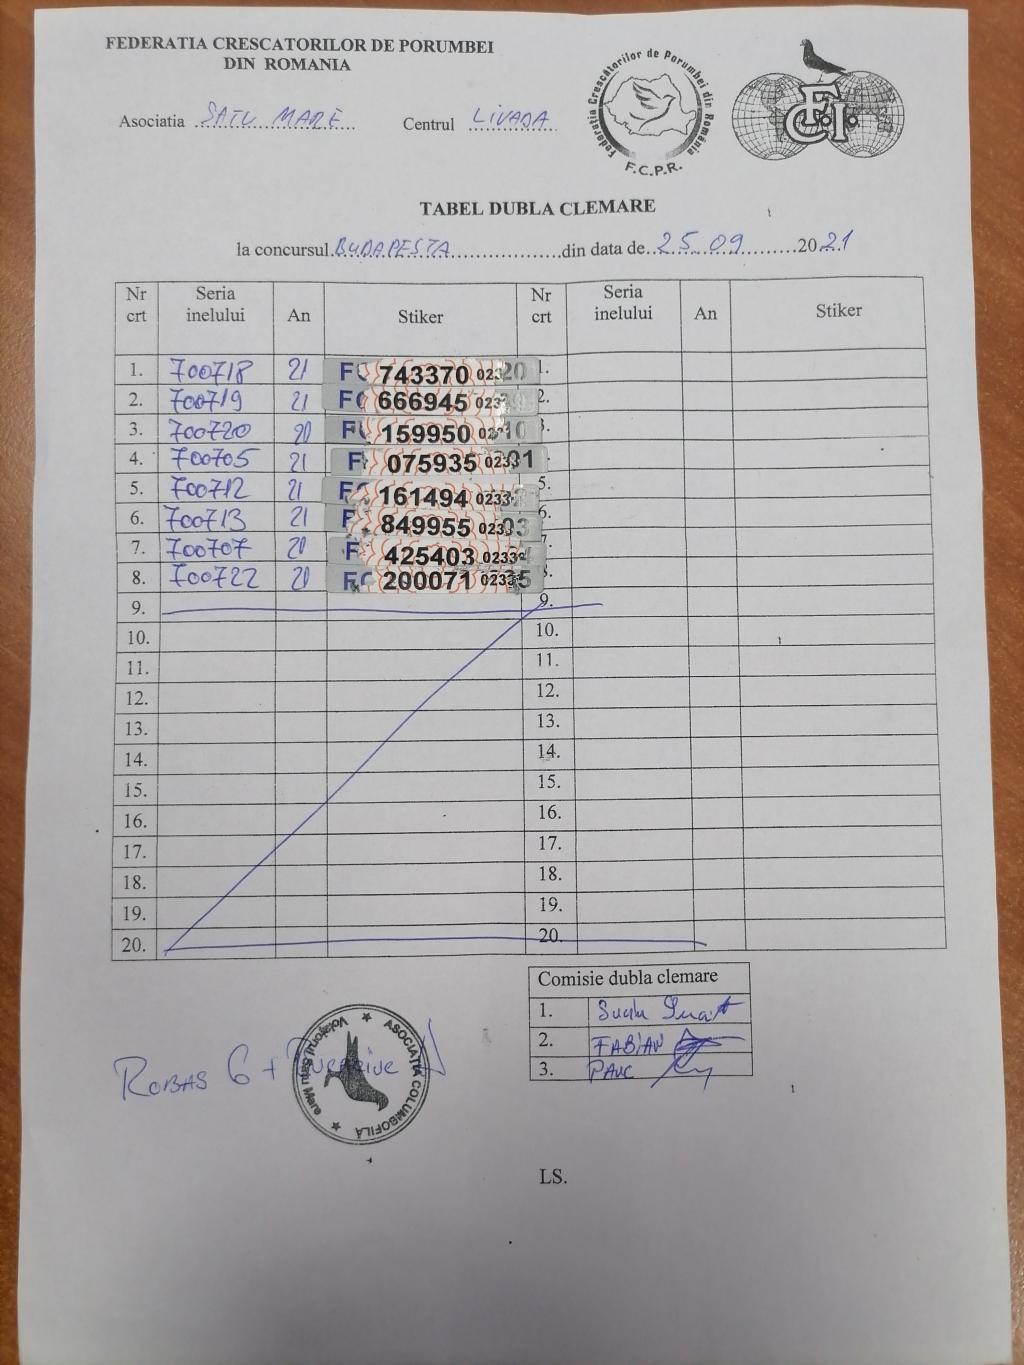 FEDERATIA CRESCATORILOR DE PORUMBEI
DIN ROMANIA
Asociatia SATU MARE Centrul LIVADA
Federația Crescătorilor de Porumbei din România
F.C.P.R.
F.C.I.
TABEL DUBLA CLEMARE
la concursul BUDAPESTA din data de 25.09 2021
Nr crt Seria inelului An Stiker Nr crt Seria inelului An Stiker
1. 700718 21 743370 1.
2. 700719 21 666945 2.
3. 700720 20 159950 3.
4. 700705 21 075935
5. 700712 21 161494 5.
6. 700713 21 849955 6.
7. 700707 20 425403 7.
8. 700722 20 200071 8.
9. 9.
10. 10.
11. 11.
12. 12.
13. 13.
14. 14.
15. 15.
16. 16.
17. 17.
18. 18.
19. 19.
20. 20.
Comisie dubla clemare
1.
2. FABIAN
3.
ROBAS G +
ASOCIAȚIA COLUMBOFILĂ
Satu Mare
LS.